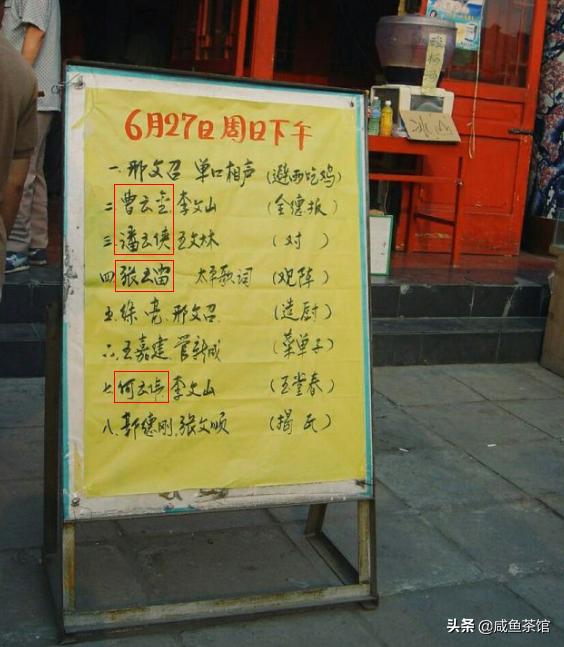 6月27日 周日下午
一.邢文召 单口相声 (避雨吃鸡)
二.曹云金.李文山 (全德报)
三.潘云侠.王文林 (对 )
四.张云雷 太平歌词 (观阵)
五.徐亮.邢文召. (造厨)
六.王嘉建.管新成 (菜单子)
七.何云伟.李文山 (玉堂春)
八.郭德刚.张文顺 (揭瓦)
酸梅汤
头条 @咸鱼茶馆